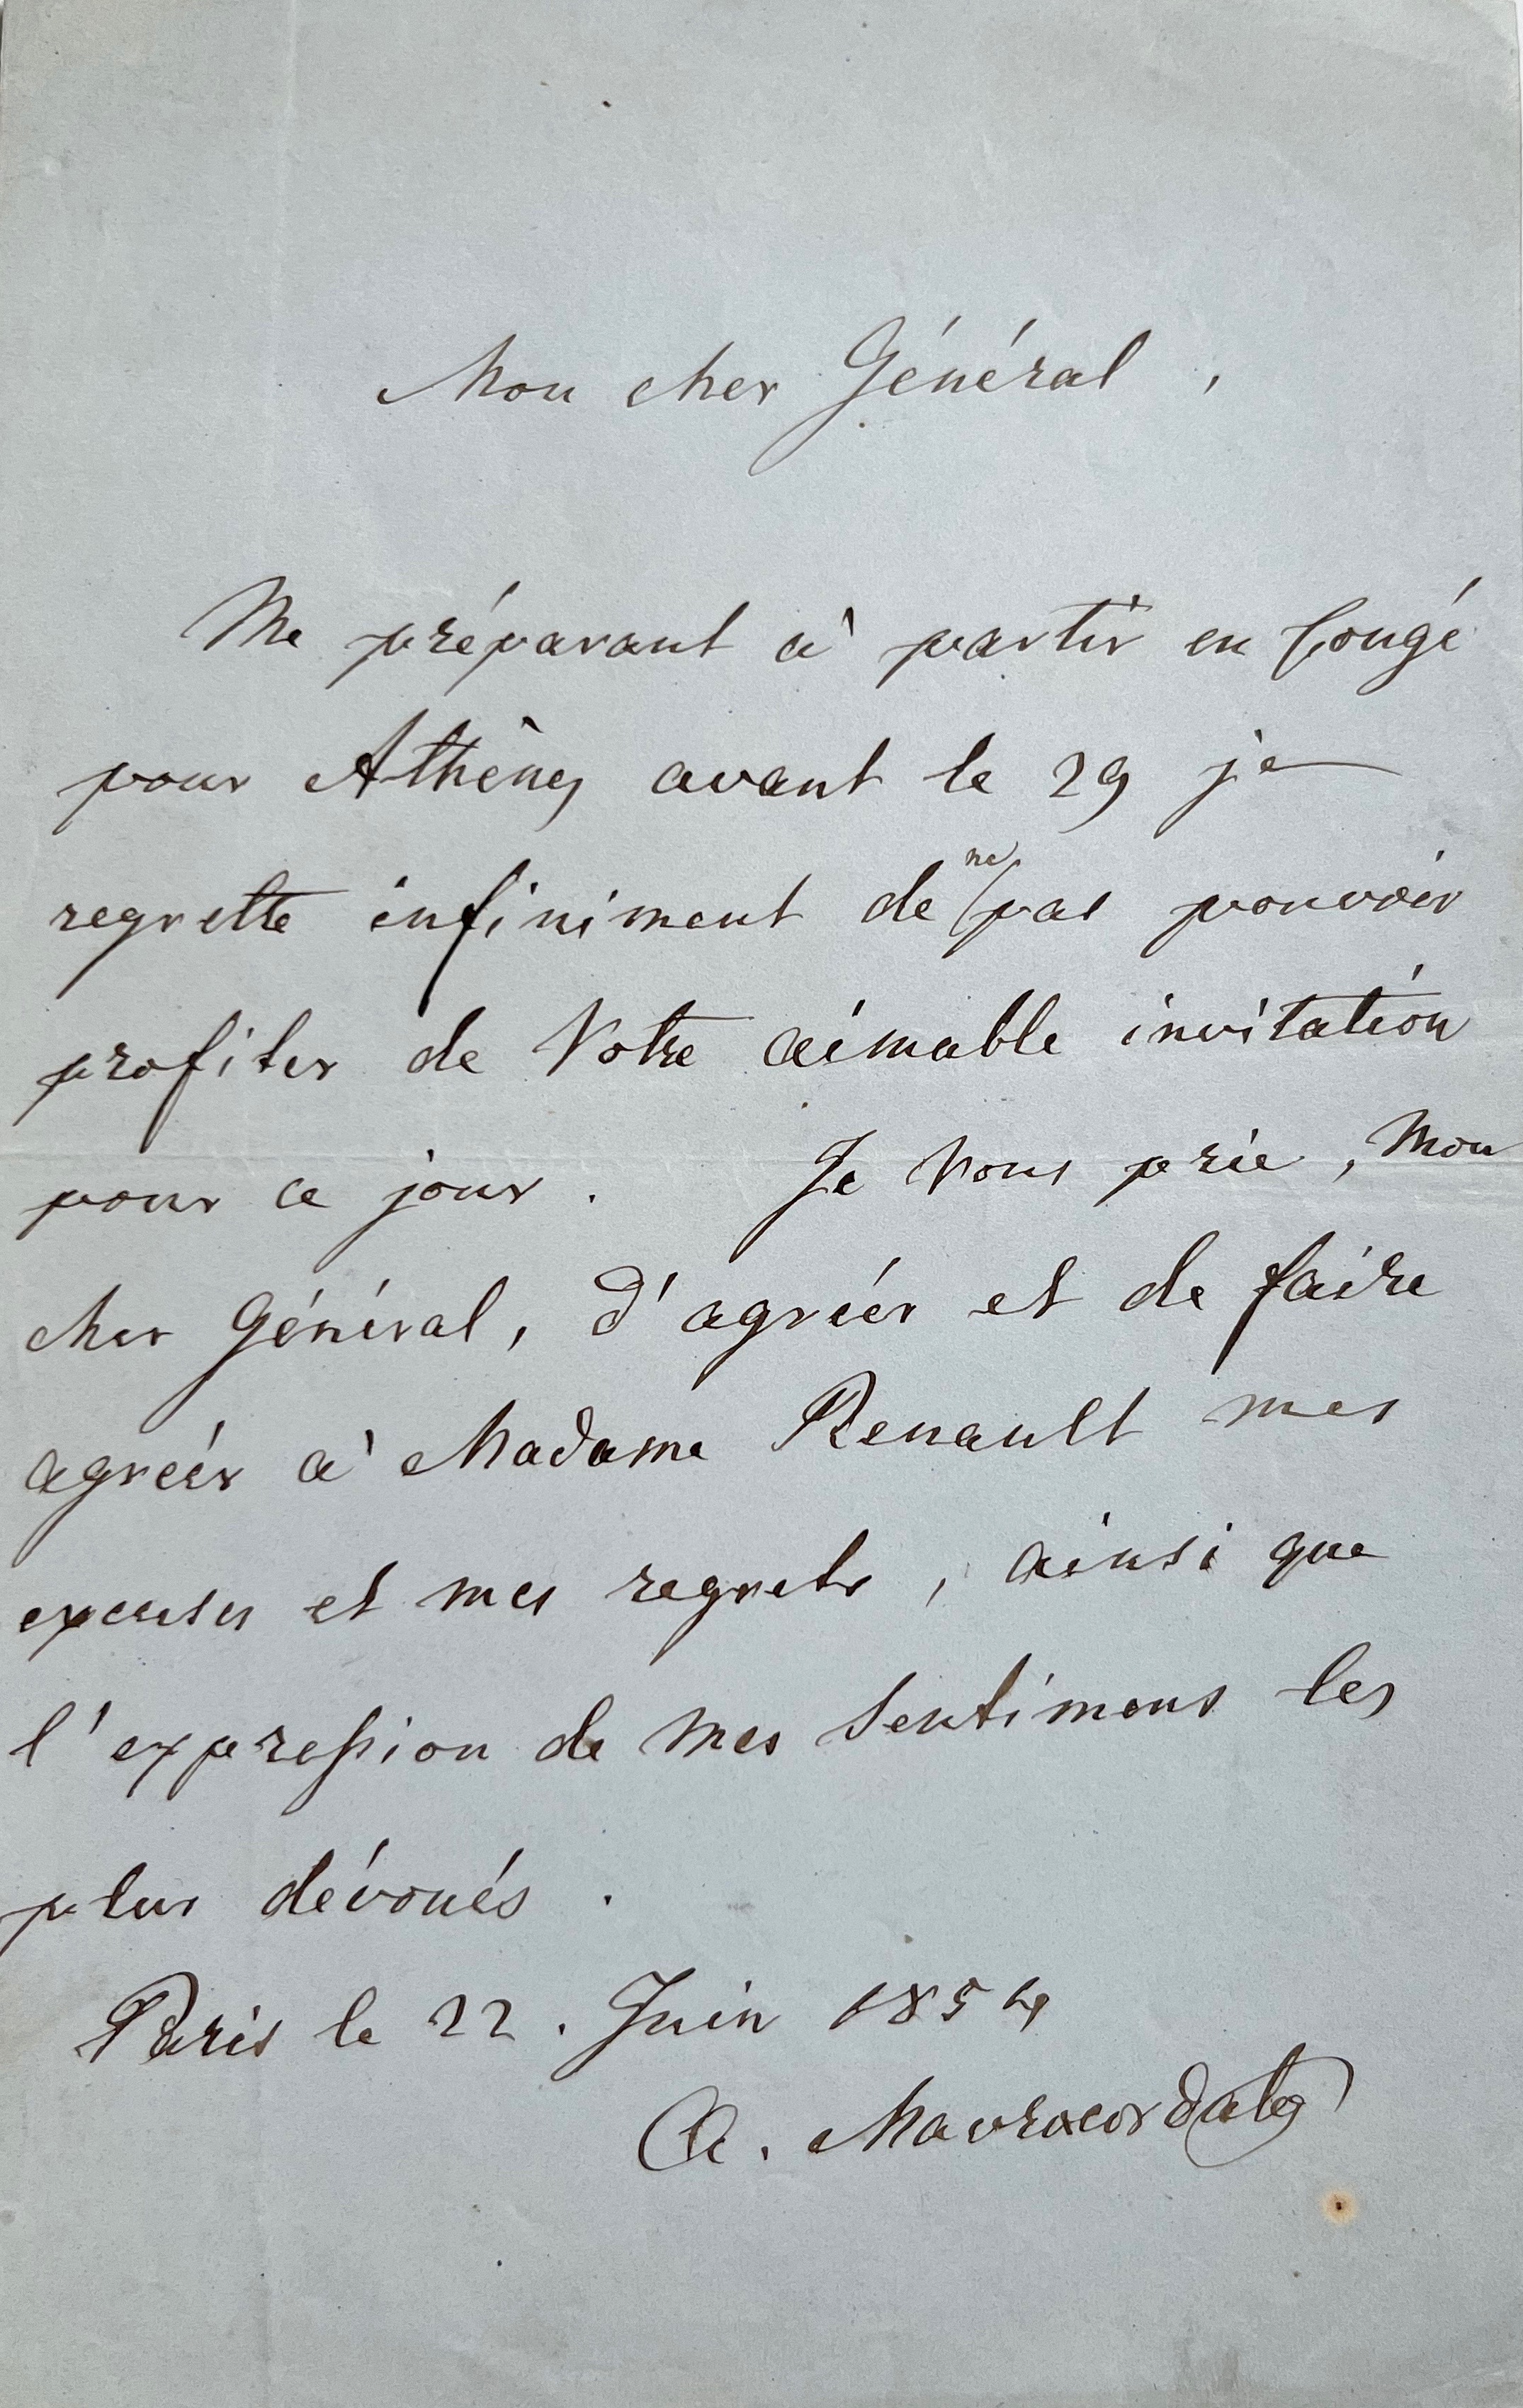 Mon cher Général,
Me préparant à partir en Congé
pour Athènes avant le 29 je
regrette infiniment de ne pas pouvoir
profiter de Votre aimable invitation
pour ce jour. Je Vous prie, Mon
cher Général, d'agréer et de faire
agréer à Madame Renault mes
excuses et mes regrets, ainsi que
l'expression de mes sentimens les
plus dévoués.
Paris le 22. Juin 1854
A. Mavrocordatos